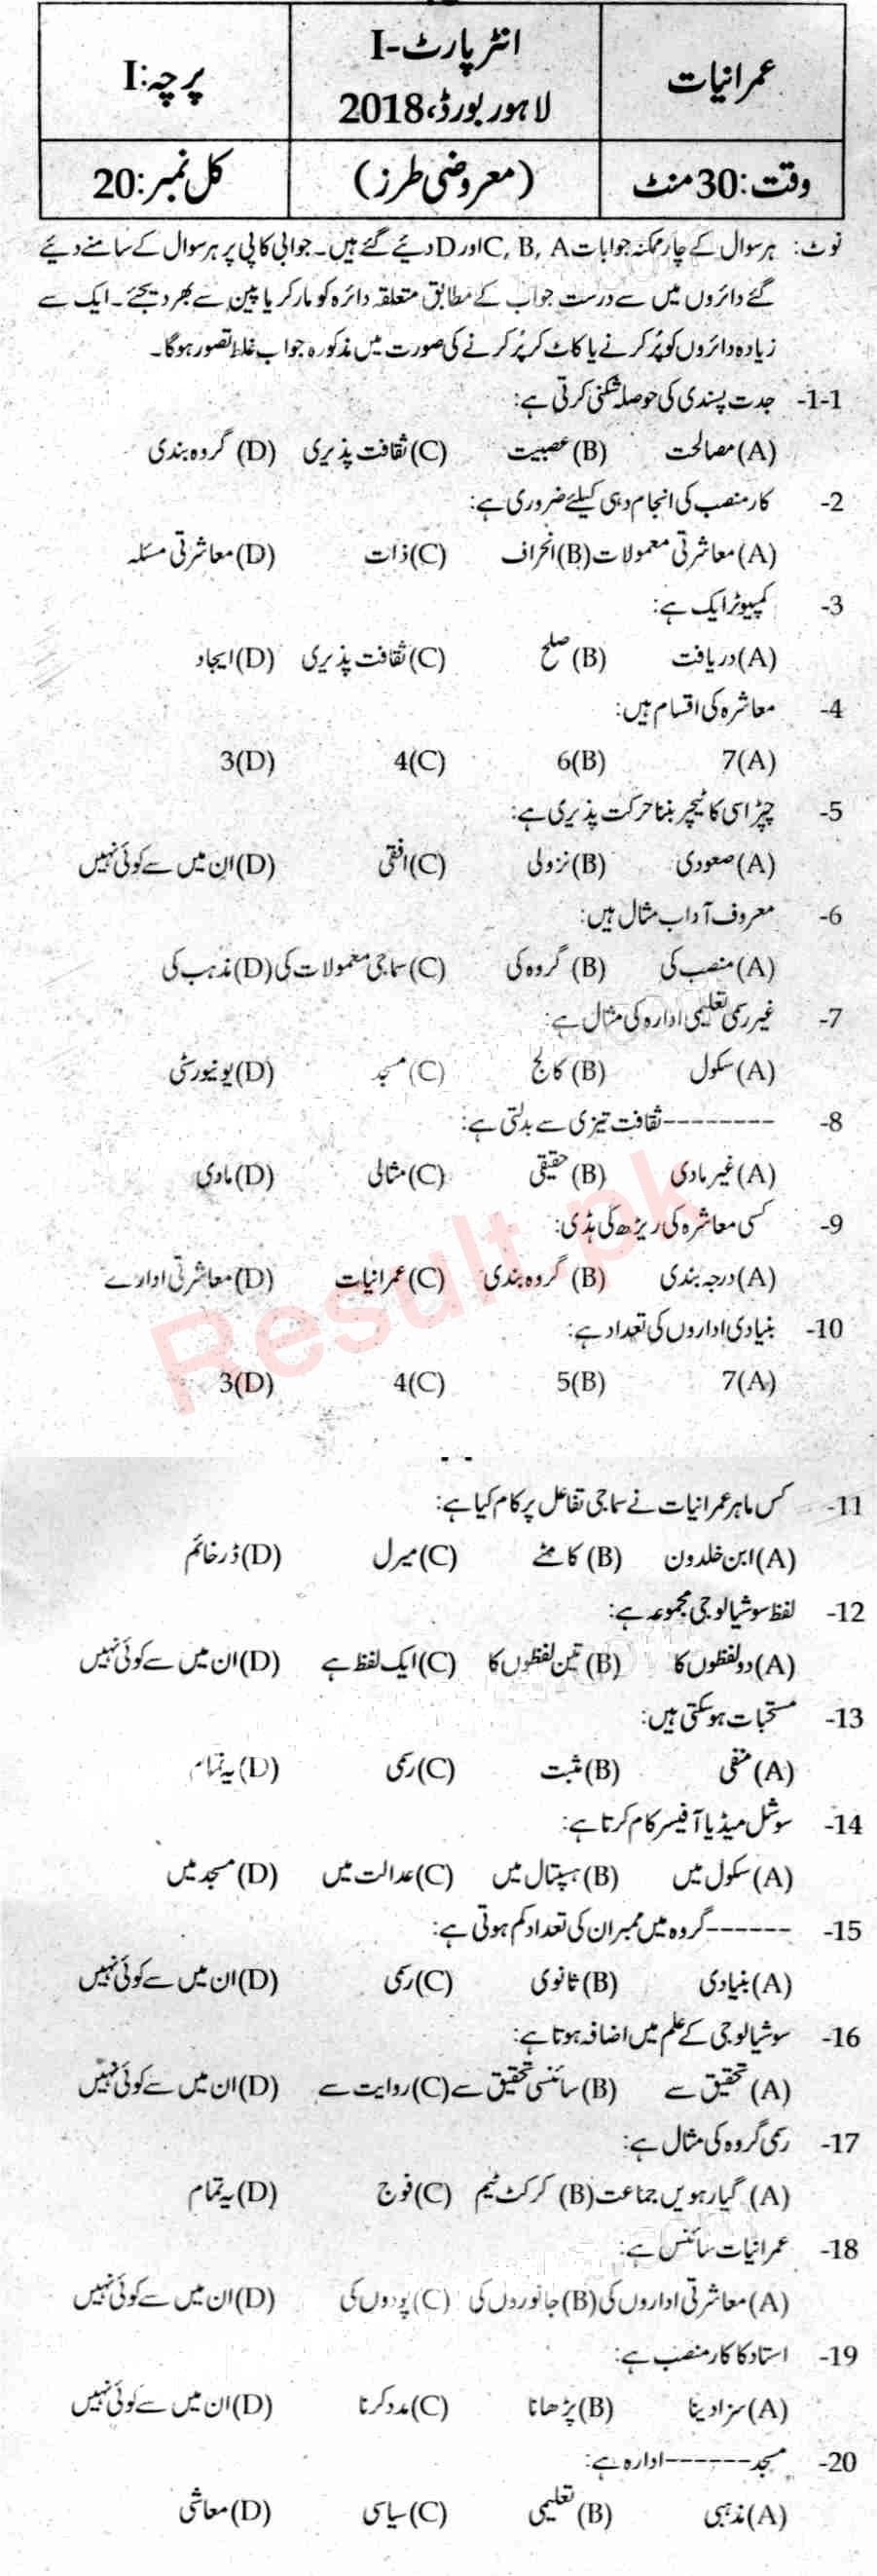 عمرانیات
انٹر پارٹ-I
لاہور بورڈ، 2018
پرچہ: I
وقت: 30 منٹ
(معروضی طرز)
کل نمبر: 20
نوٹ: ہر سوال کے چار ممکنہ جوابات C, B, A اور D دیئے گئے ہیں۔ جوابی کاپی پر ہر سوال کے سامنے دیئے
گئے دائروں میں سے درست جواب کے مطابق متعلقہ دائرہ کو مارکر یا پین سے بھر دیجئے۔ ایک سے
زیادہ دائروں کو پُر کرنے یا کاٹ کر پُر کرنے کی صورت میں مذکورہ جواب غلط تصور ہوگا۔
1-1- جدت پسندی کی حوصلہ شکنی کرتی ہے:
(A) مصالحت (B) عصبیت (C) ثقافت پذیری (D) گروہ بندی
2- کار منصب کی انجام دہی کیلئے ضروری ہے:
(A) معاشرتی معمولات (B) انحراف (C) ذات (D) معاشرتی مسئلہ
3- کمپیوٹر ایک ہے:
(A) دریافت (B) صلح (C) ثقافت پذیری (D) ایجاد
4- معاشرہ کی اقسام ہیں:
(A) 7 (B) 6 (C) 4 (D) 3
5- چپڑاسی کا ٹیچر بننا حرکت پذیری ہے:
(A) صعودی (B) نزولی (C) افقی (D) ان میں سے کوئی نہیں
6- معروف آداب مثال ہیں:
(A) منصب کی (B) گروہ کی (C) سماجی معمولات کی (D) مذہب کی
7- غیر رسمی تعلیمی ادارہ کی مثال ہے:
(A) سکول (B) کالج (C) مسجد (D) یونیورسٹی
8- --------ثقافت تیزی سے بدلتی ہے:
(A) غیر مادی (B) حقیقی (C) مثالی (D) مادی
9- کسی معاشرہ کی ریڑھ کی ہڈی:
(A) درجہ بندی (B) گروہ بندی (C) عمرانیات (D) معاشرتی ادارے
10- بنیادی اداروں کی تعداد ہے:
(A) 7 (B) 5 (C) 4 (D) 3
11- کس ماہر عمرانیات نے سماجی تفاعل پر کام کیا ہے:
(A) ابن خلدون (B) کامٹے (C) میرل (D) ڈرخائم
12- لفظ سوشیالوجی مجموعہ ہے:
(A) دو لفظوں کا (B) تین لفظوں کا (C) ایک لفظ ہے (D) ان میں سے کوئی نہیں
13- مستحبات ہوسکتی ہیں:
(A) منفی (B) مثبت (C) رسمی (D) یہ تمام
14- سوشل میڈیا آفیسر کام کرتا ہے:
(A) سکول میں (B) ہسپتال میں (C) عدالت میں (D) مسجد میں
15- ------گروہ میں ممبران کی تعداد کم ہوتی ہے:
(A) بنیادی (B) ثانوی (C) رسمی (D) ان میں سے کوئی نہیں
16- سوشیالوجی کے علم میں اضافہ ہوتا ہے:
(A) تحقیق سے (B) سائنسی تحقیق سے (C) روایت سے (D) ان میں سے کوئی نہیں
17- رسمی گروہ کی مثال ہے:
(A) گیارہویں جماعت (B) کرکٹ ٹیم (C) فوج (D) یہ تمام
18- عمرانیات سائنس ہے:
(A) معاشرتی اداروں کی (B) جانوروں کی (C) پودوں کی (D) ان میں سے کوئی نہیں
19- استاد کا کار منصب ہے:
(A) سزا دینا (B) پڑھانا (C) مدد کرنا (D) ان میں سے کوئی نہیں
20- مسجد------ادارہ ہے:
(A) مذہبی (B) تعلیمی (C) سیاسی (D) معاشی
Result.pk